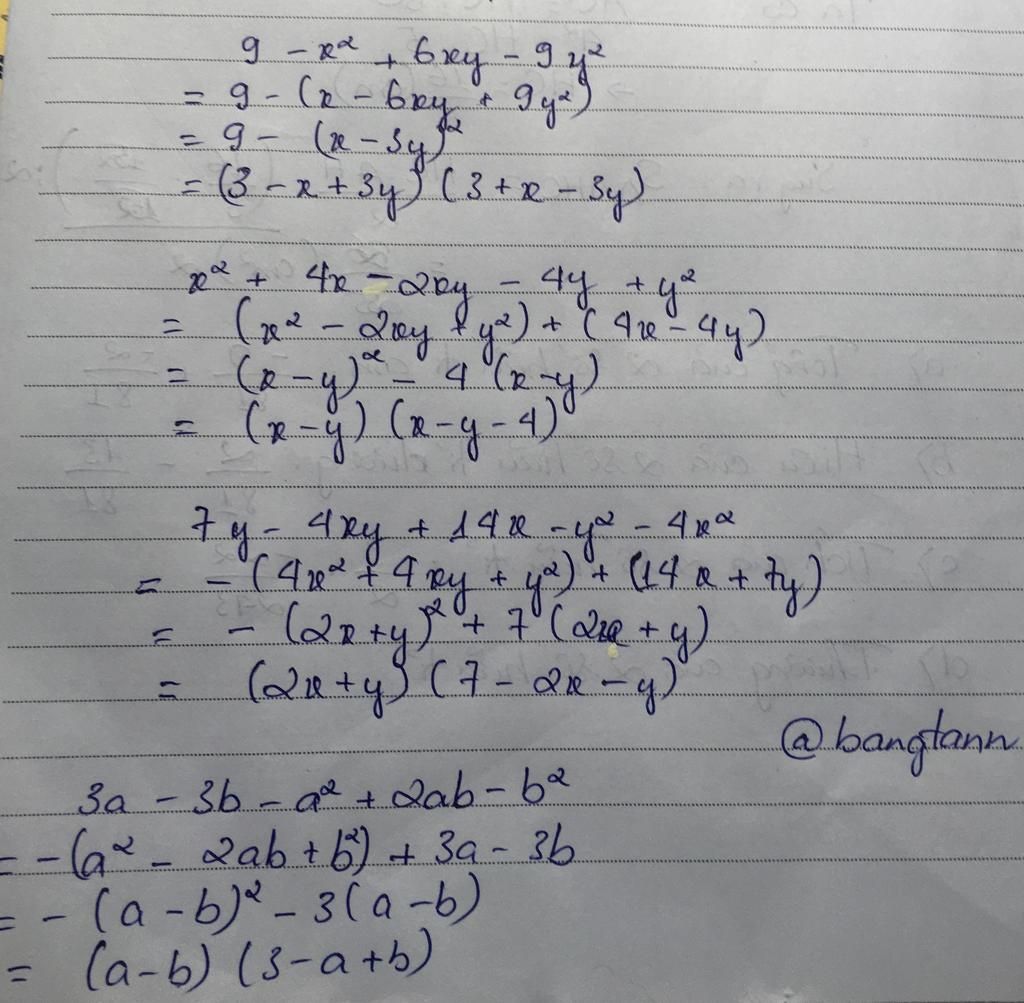 9 - x² + 6xy - 9y²
= 9 - (x - 6xy + 9y²)
= 9 - (x - 3y)²
= (3 - x + 3y) (3 + x - 3y)
x² + 4x - 2xy - 4y + y²
= (x² - 2xy + y²) + (4x - 4y)
= (x - y)² - 4 (x - y)
= (x - y) (x - y - 4)
7y - 4xy + 14x - y² - 4x²
= - (4x² + 4xy + y²) + (14x + 7y)
= - (2x + y)² + 7 (2x + y)
= (2x + y) (7 - 2x - y)
@bangtann
3a - 3b - a² + 2ab - b²
= - (a² - 2ab + b²) + 3a - 3b
= - (a - b)² - 3(a - b)
= (a - b) (3 - a + b)